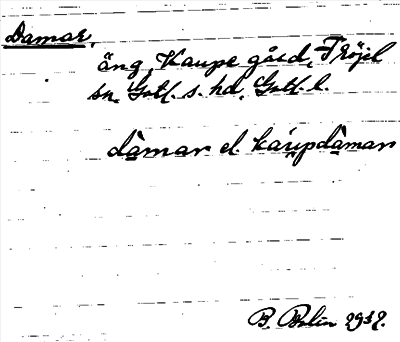 Damar,
äng, Kaupe gård, Fröjel
sn. Gotl. s. hd, Gotl. l.
dàmar el. káupdàmar
B. Bolin 1932.